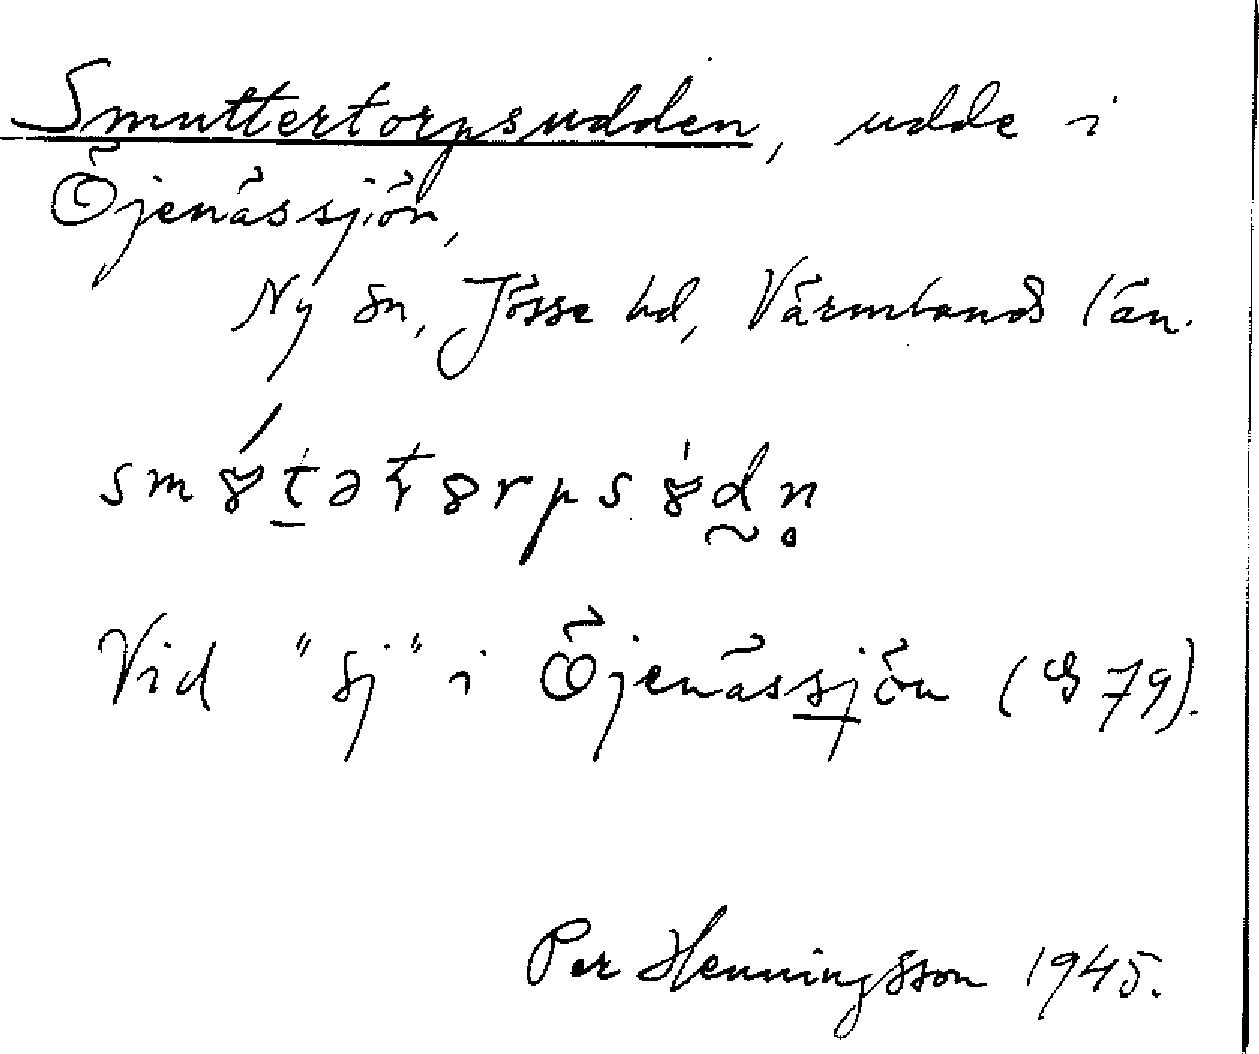 Smuttertorpsudden, udde i
Öjenässjön,
Ny sn, Jösse hd, Värmlands län.
Vid "sj" i Öjenässjön (S 79).
Per Henningsson 1945.